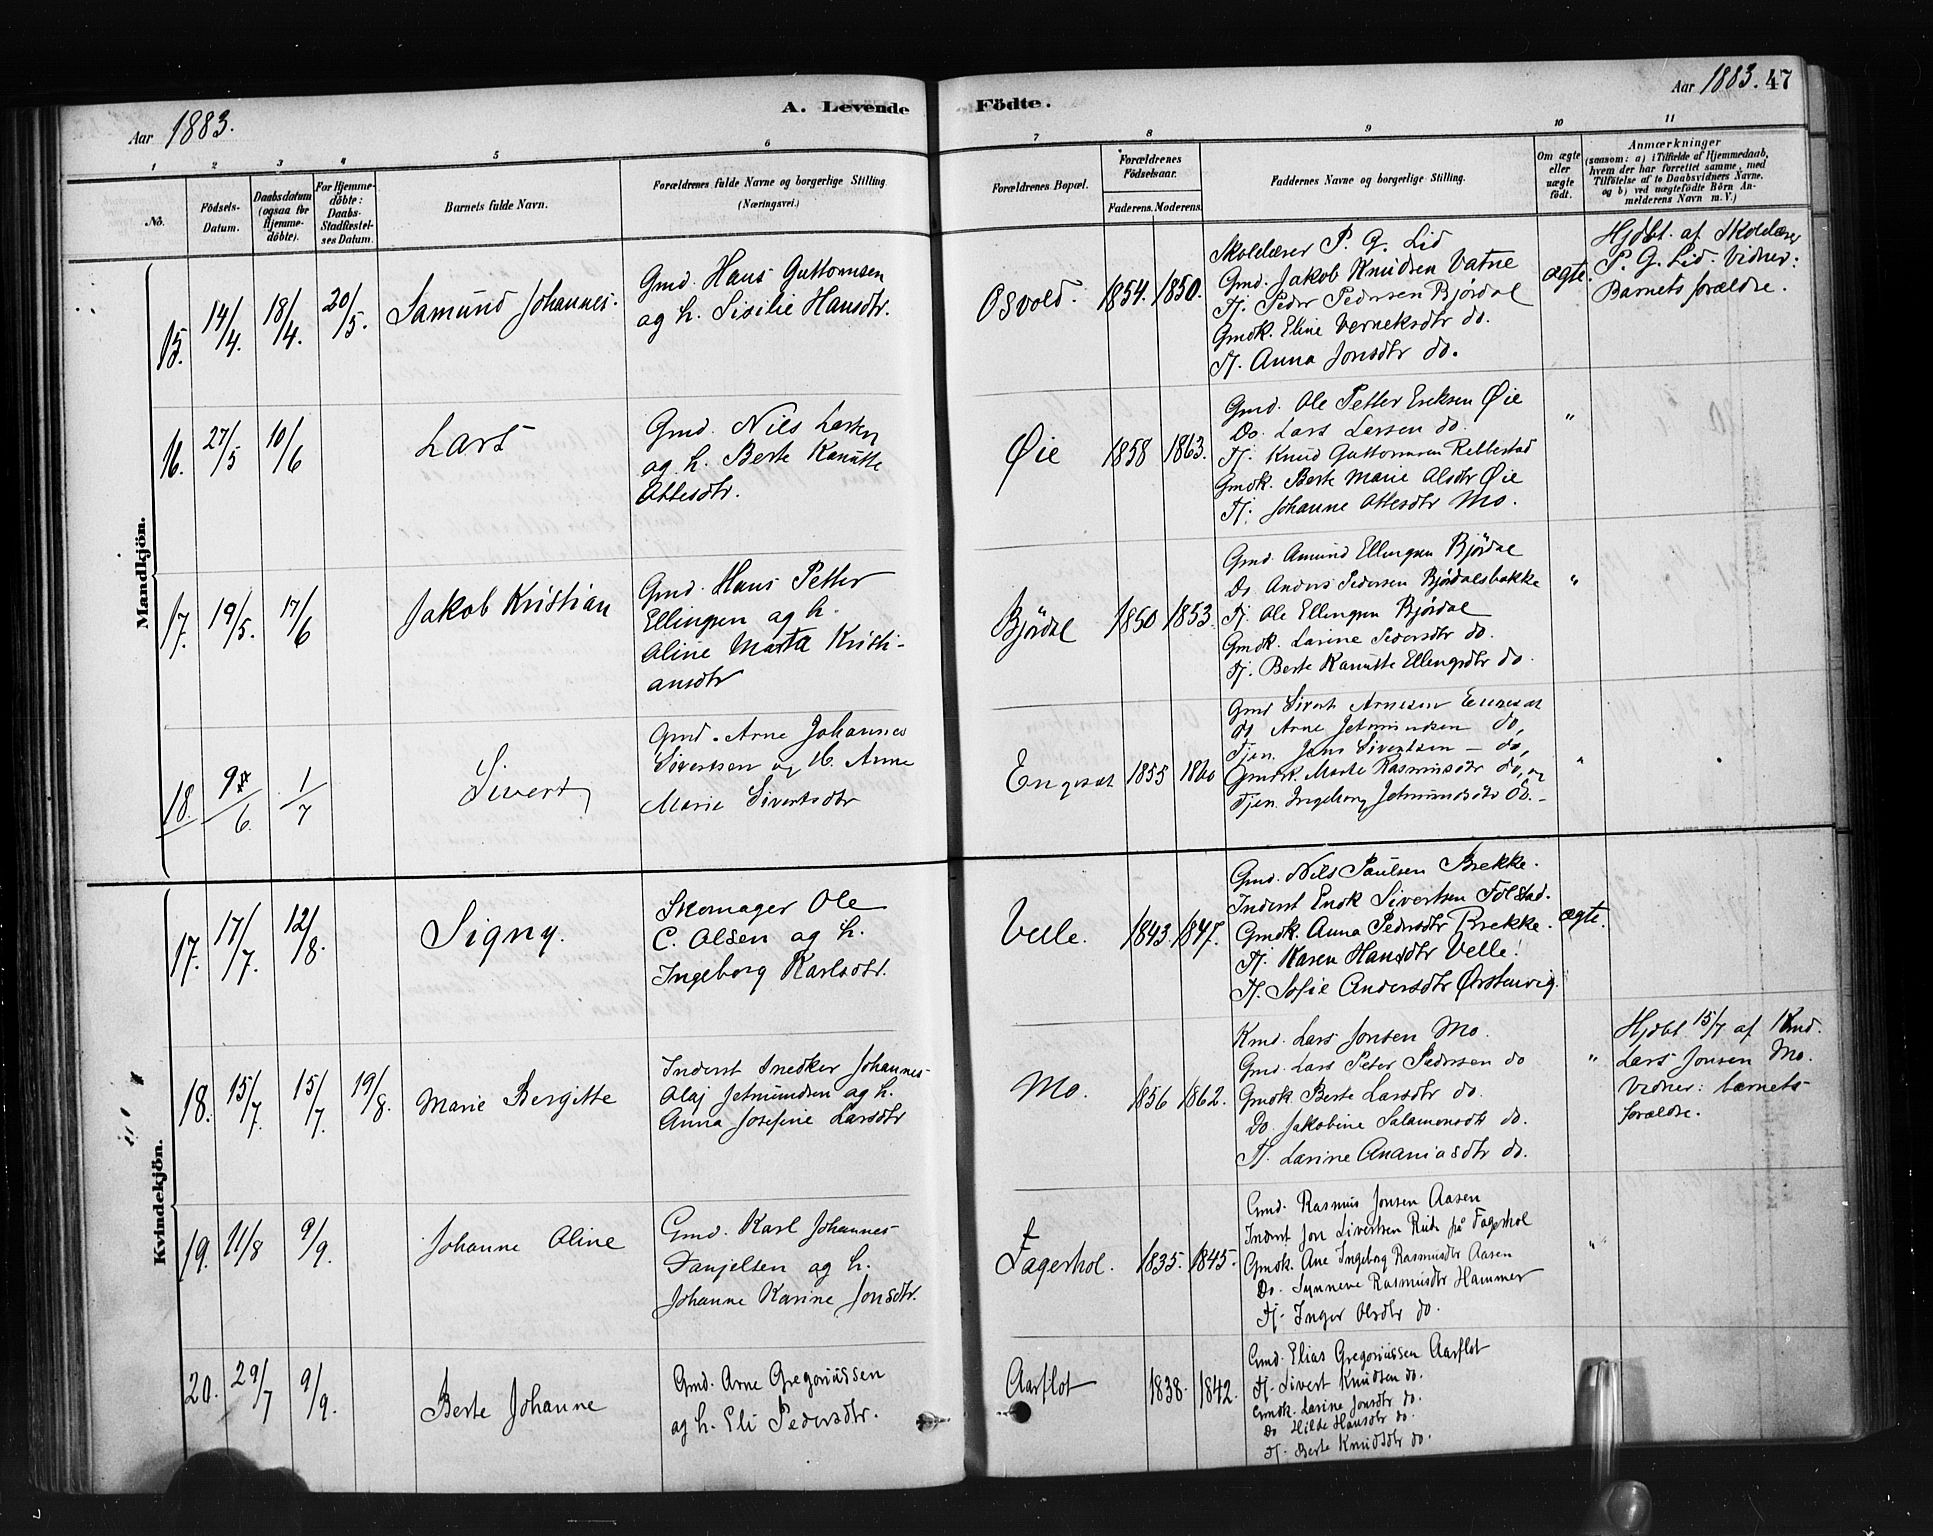 Aar 1883.
A. Levende Födte.
Aar 1883. 47
1 2 3 4 5 6 7 8 9 10 11
No.
Födsels-
Datum.
Daabsdatum
(ogsaa for
Hjemme-
döbte).
For Hjemme-
döbte:
Daabs-
Stadfæstel-
ses Datum.
Barnets fulde Navn.
Forældrenes fulde Navne og borgerlige Stilling
(Næringsvei.)
Forældrenes Bopæl.
Forældrenes
Födselsaar.
Faderens. Moderens.
Faddernes Navne og borgerlige Stilling.
Om ægte
eller
uægte
födt.
Anmærkninger
(saasom: a) i Tilfælde af Hjemmedaab,
hvem der har forrettet samme, med
Tilföielse af to Daabsvidners Navne.
og b) ved uægtefödte Börn An-
melderens Navn m. V.)
Mandkjön.
15. 14/4. 18/4. 20/5. Samund Johannes.
Gmd. Hans Guttormsen
og h. Sisilie Hansdtr.
Osvold. 1854. 1850.
Skolelærer P. G. Lid
Gmd. Jakob Knudsen Vatne
Tj. Peder Pedersen Bjørdal
Gmdk. Eline Verneksdtr do.
Tj. Anna Jonsdtr do.
ægte.
Hjdbt. af Skolelærer
P. G. Lid. Vidner:
Barnets forældre.
16. 27/5 10/6 Lars
Gmd. Nils Larsen
og h. Berte Kanutte
Ottesdtr.
Øie 1858 1863.
Gmd. Ole Petter Eriksen Øie
Do. Lars Larsen do.
Tj. Knud Guttormsen Rebbestad
Gmdk. Berte Marie Olsdtr Øie
Tj. Johanne Ottesdtr Mo.
"
17. 19/5. 17/6 Jakob Kristian
Gmd. Hans Petter
Ellingsen og h.
Oline Marta Kristi-
ansdtr
Bjørdal 1850 1853.
Gmd. Amund Ellingsen Bjørdal
Do Anders Pedersen Bjørdalsbakke
Tj. Ole Ellingsen Bjørdal
Gmdk. Larine Pedersdtr do.
Tj. Berte Kanutte Ellingsdtr do.
"
18. 9/6. 1/7 Sivert
Gmd. Arne Johannes
Sivertsen og H. Anne
Marie Sivertsdtr
Engeset 1855 1860
Gmd Sivert Arnesen Engeset
do Arne Jetmundsen do,
Tjen. Jens Sivertsen - do,
Gmdk. Marte Rasmusdtr do, og
Tjen. Ingeborg Jetmundsdtr do. -
"
Kvindekjön.
17. 17/7. 12/8. Signy.
Skomager Ole
C. Olsen og h.
Ingeborg Karlsdtr.
Velle. 1843. 1847.
Gmd. Nils Paulsen Brekke.
Inderst Enok Sivertsen Folstad.
Gmdk. Anna Pedersdtr Brekke.
Tj. Karen Hansdtr Velle.
Tj. Sofie Andersdtr Ørstenvig.
ægte.
18. 15/7. 15/7. 19/8. Marie Bergitte
Inderst Snedker Johannes
Olaj Jetmundsen og h.
Anna Josefine Larsdtr
Mo. 1856 1862.
Kmd. Lars Jonsen Mo.
Gmd. Lars Peter Pedersen do
Gmdk Berte Larsdtr do.
Do. Jakobine Salamonsdtr do.
Tj. Larine Ananiasdtr do.
"
Hjdbt 15/7 af Kmd.
Lars Jonsen Mo.
Vidner: barnets
forældre.
19. 11/8 9/9. Johanne Oline
Gmd. Karl Johannes
Danjelsen og h.
Johanne Karine Jonsdtr.
Fagerhol. 1835. 1845.
Gmd. Rasmus Jonsen Aasen
Inderst Jon Sivertsen Rud på Fagerhol
Gmdk. Ane Ingeborg Rasmusdtr Aasen
Do. Synneve Rasmusdtr Hammer
Tj. Inger Olsdtr do.
"
20. 29/7 9/9. Berte Johanne
Gmd. Arne Gregoriussen
og h. Eli Pedersdtr.
Aarflot 1838. 1842.
Gmd. Elias Gregoriussen Aarflot
Tj. Sivert Knudsen do.
Gmdk. Larine Jonsdtr do.
Do Hilde Hansdtr do.
Tj. Berte Knudsdtr do.